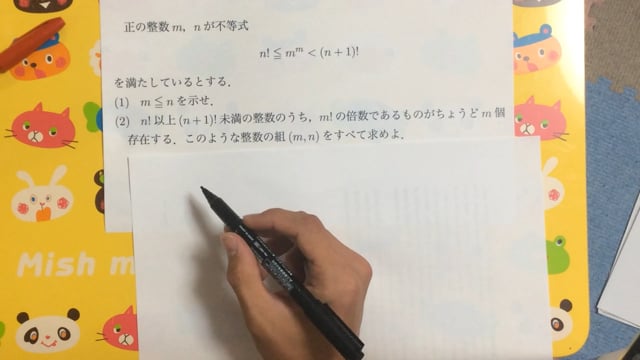 正の整数 m, n が不等式
n! ≦ m^m < (n+1)!
を満たしているとする.
(1) m ≦ n を示せ.
(2) n! 以上 (n+1)! 未満の整数のうち, m! の倍数であるものがちょうど m 個
存在する. このような整数の組 (m, n) をすべて求めよ.
Mish m